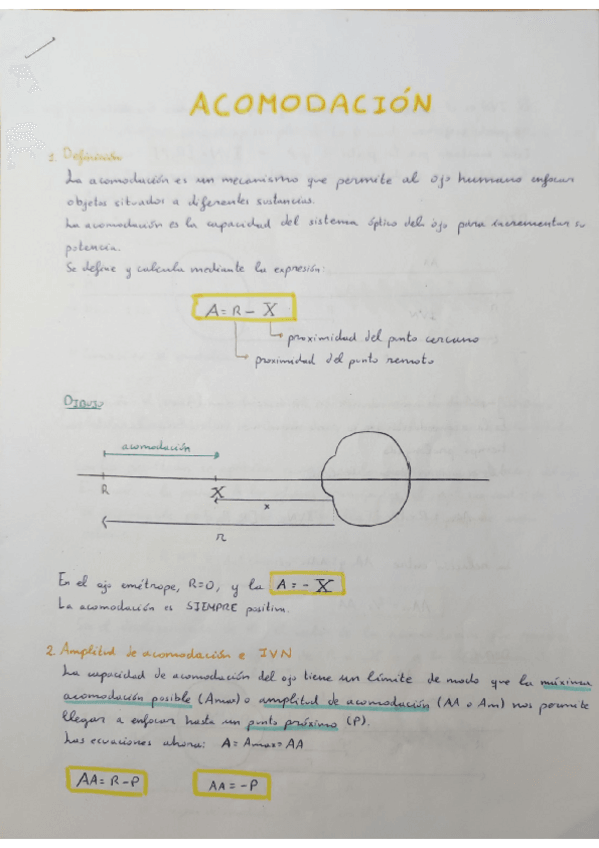 ACOMODACIÓN
1. Definición
La acomodación es un mecanismo que permite al ojo humano enfocar
objetos situados a diferentes sustancias.
La acomodación es la capacidad del sistema óptico del ojo para incrementar su
potencia.
Se define y calcula mediante la expresión:
A = R - X
proximidad del punto cercano
proximidad del punto remoto
DIBUJO
acomodación
R
X
x
r
En el ojo emétrope, R=0, y la A = - X
La acomodación es SIEMPRE positiva.
2. Amplitud de acomodación e IVN
La capacidad de acomodación del ojo tiene un límite de modo que la máxima
acomodación posible (Amax) o amplitud de acomodación (AA o Am) nos permite
llegar a enfocar hasta un punto próximo (P).
Las ecuaciones ahora: A = Amax = AA
AA = R - P
AA = - P